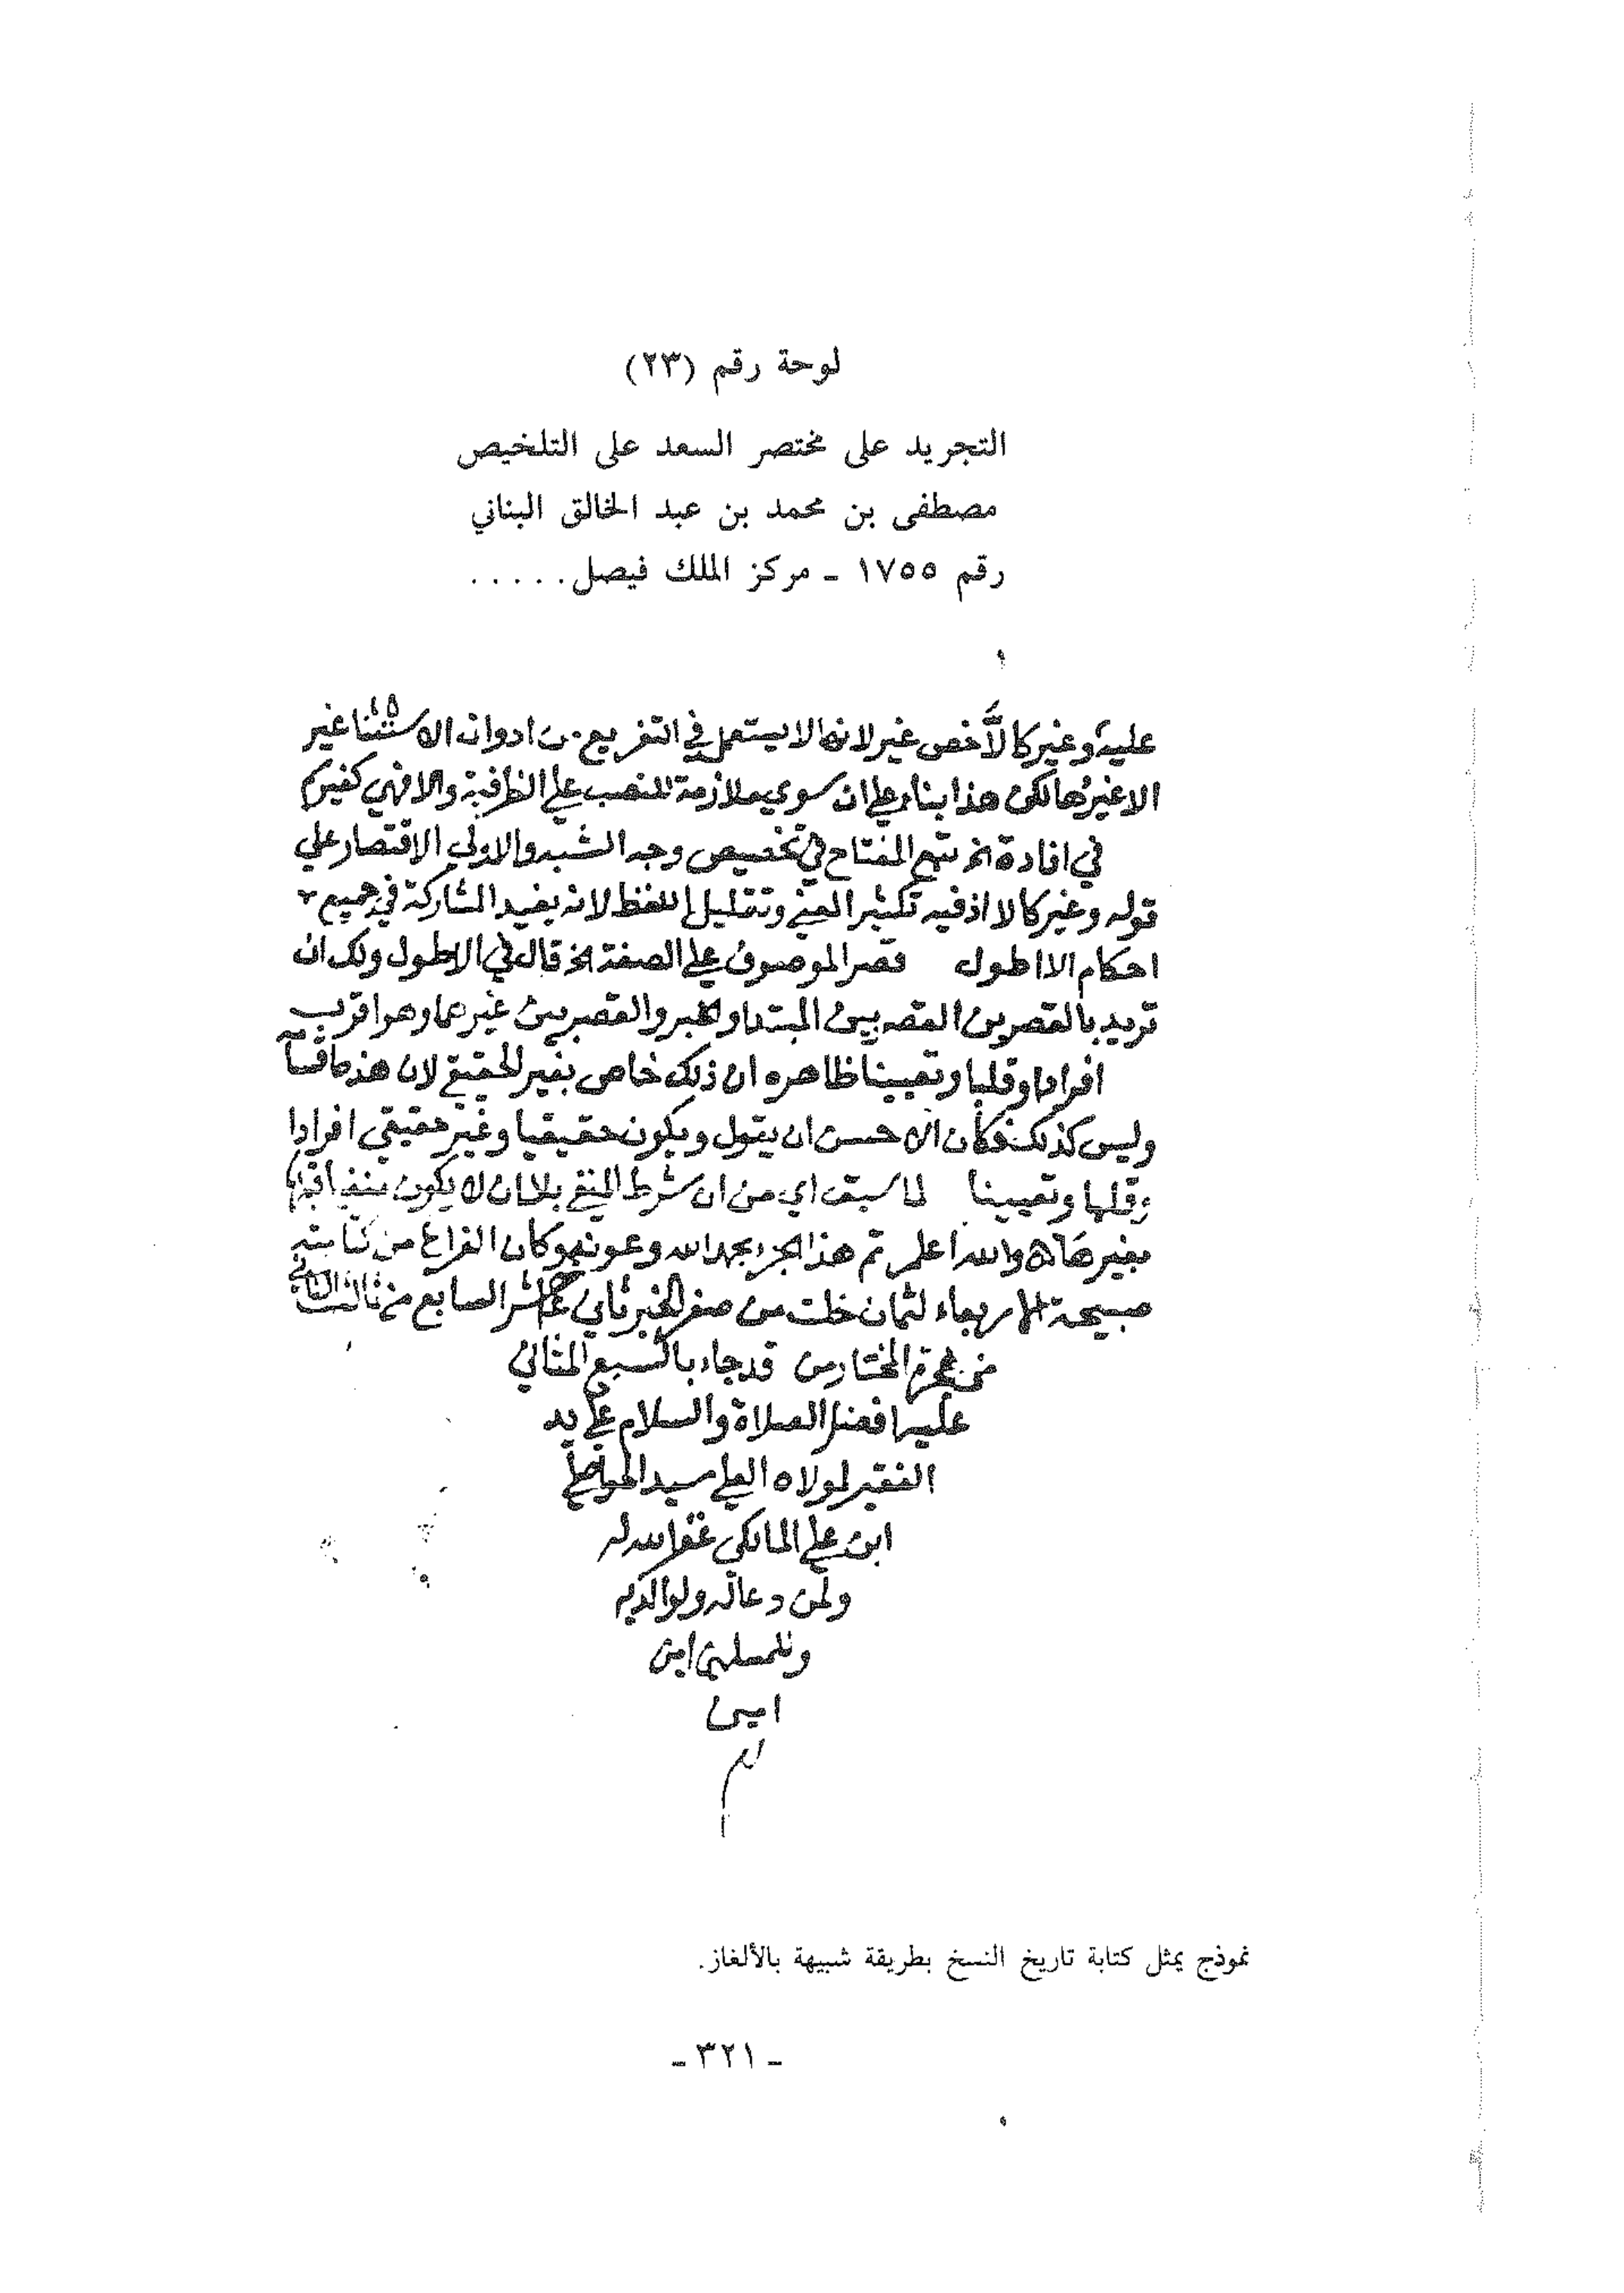 لوحة رقم (٢٣)
التجريد على مختصر السعد على التلخيص
مصطفى بن محمد بن عبد الخالق البناني
رقم ١٧٥٥ - مركز الملك فيصل.....
عليه وغير كالا خص غير لانها لا يستعمل في التفريع من ادوات الاستثنا غير
الا غيرها لكن هذا بناء علي ان سوي ملازمة للنصب علي الظرفية والا فهي كغير
في افادة الخ تتبع المفتاح في تخصيص وجه الشبه والاولي الاقتصار علي
قوله وغير كالا اذ فيه تكثير المعني وتقليل اللفظ لانه يفيد المشاركة في جميع
احكام الا اطول قصر الموصوف علي الصفة الخ قال في الاطول ولك ان
تريد بالقصرين القصر بين المبتدا والخبر والقصر بين غيرهما وهو اقرب
افرادا وقلبا وتعيينا ظاهره ان ذلك خاص بغير الحقيقي لان هذه اقسامه
وليس كذلك فكان الاحسن ان يقول ويكون حقيقيا وغير حقيقي افرادا
وقلبا وتعيينا لما سبق اي من ان شرط النفي بلا ان لا يكون منفيا قبلها
بغيرها والله اعلم تم هذا الجزء بحمد الله وعونه وكان الفراغ من كتابته
صبيحة الاربعاء لثمان خلت من صفر الخير ثاني عاشر السابع من ثالث الثاني
من هجرة المختار من قد جاء بالسبع المثاني
عليه افضل الصلاة والسلام علي يد
الفقير لمولاه العلي سيد
ابن علي المالكي غفر الله له
ولمن دعا له ولوالديه
وللمسلمين امين
امين
نموذج يمثل كتابة تاريخ النسخ بطريقة شبيهة بالألغاز.
- ٣٢١ -